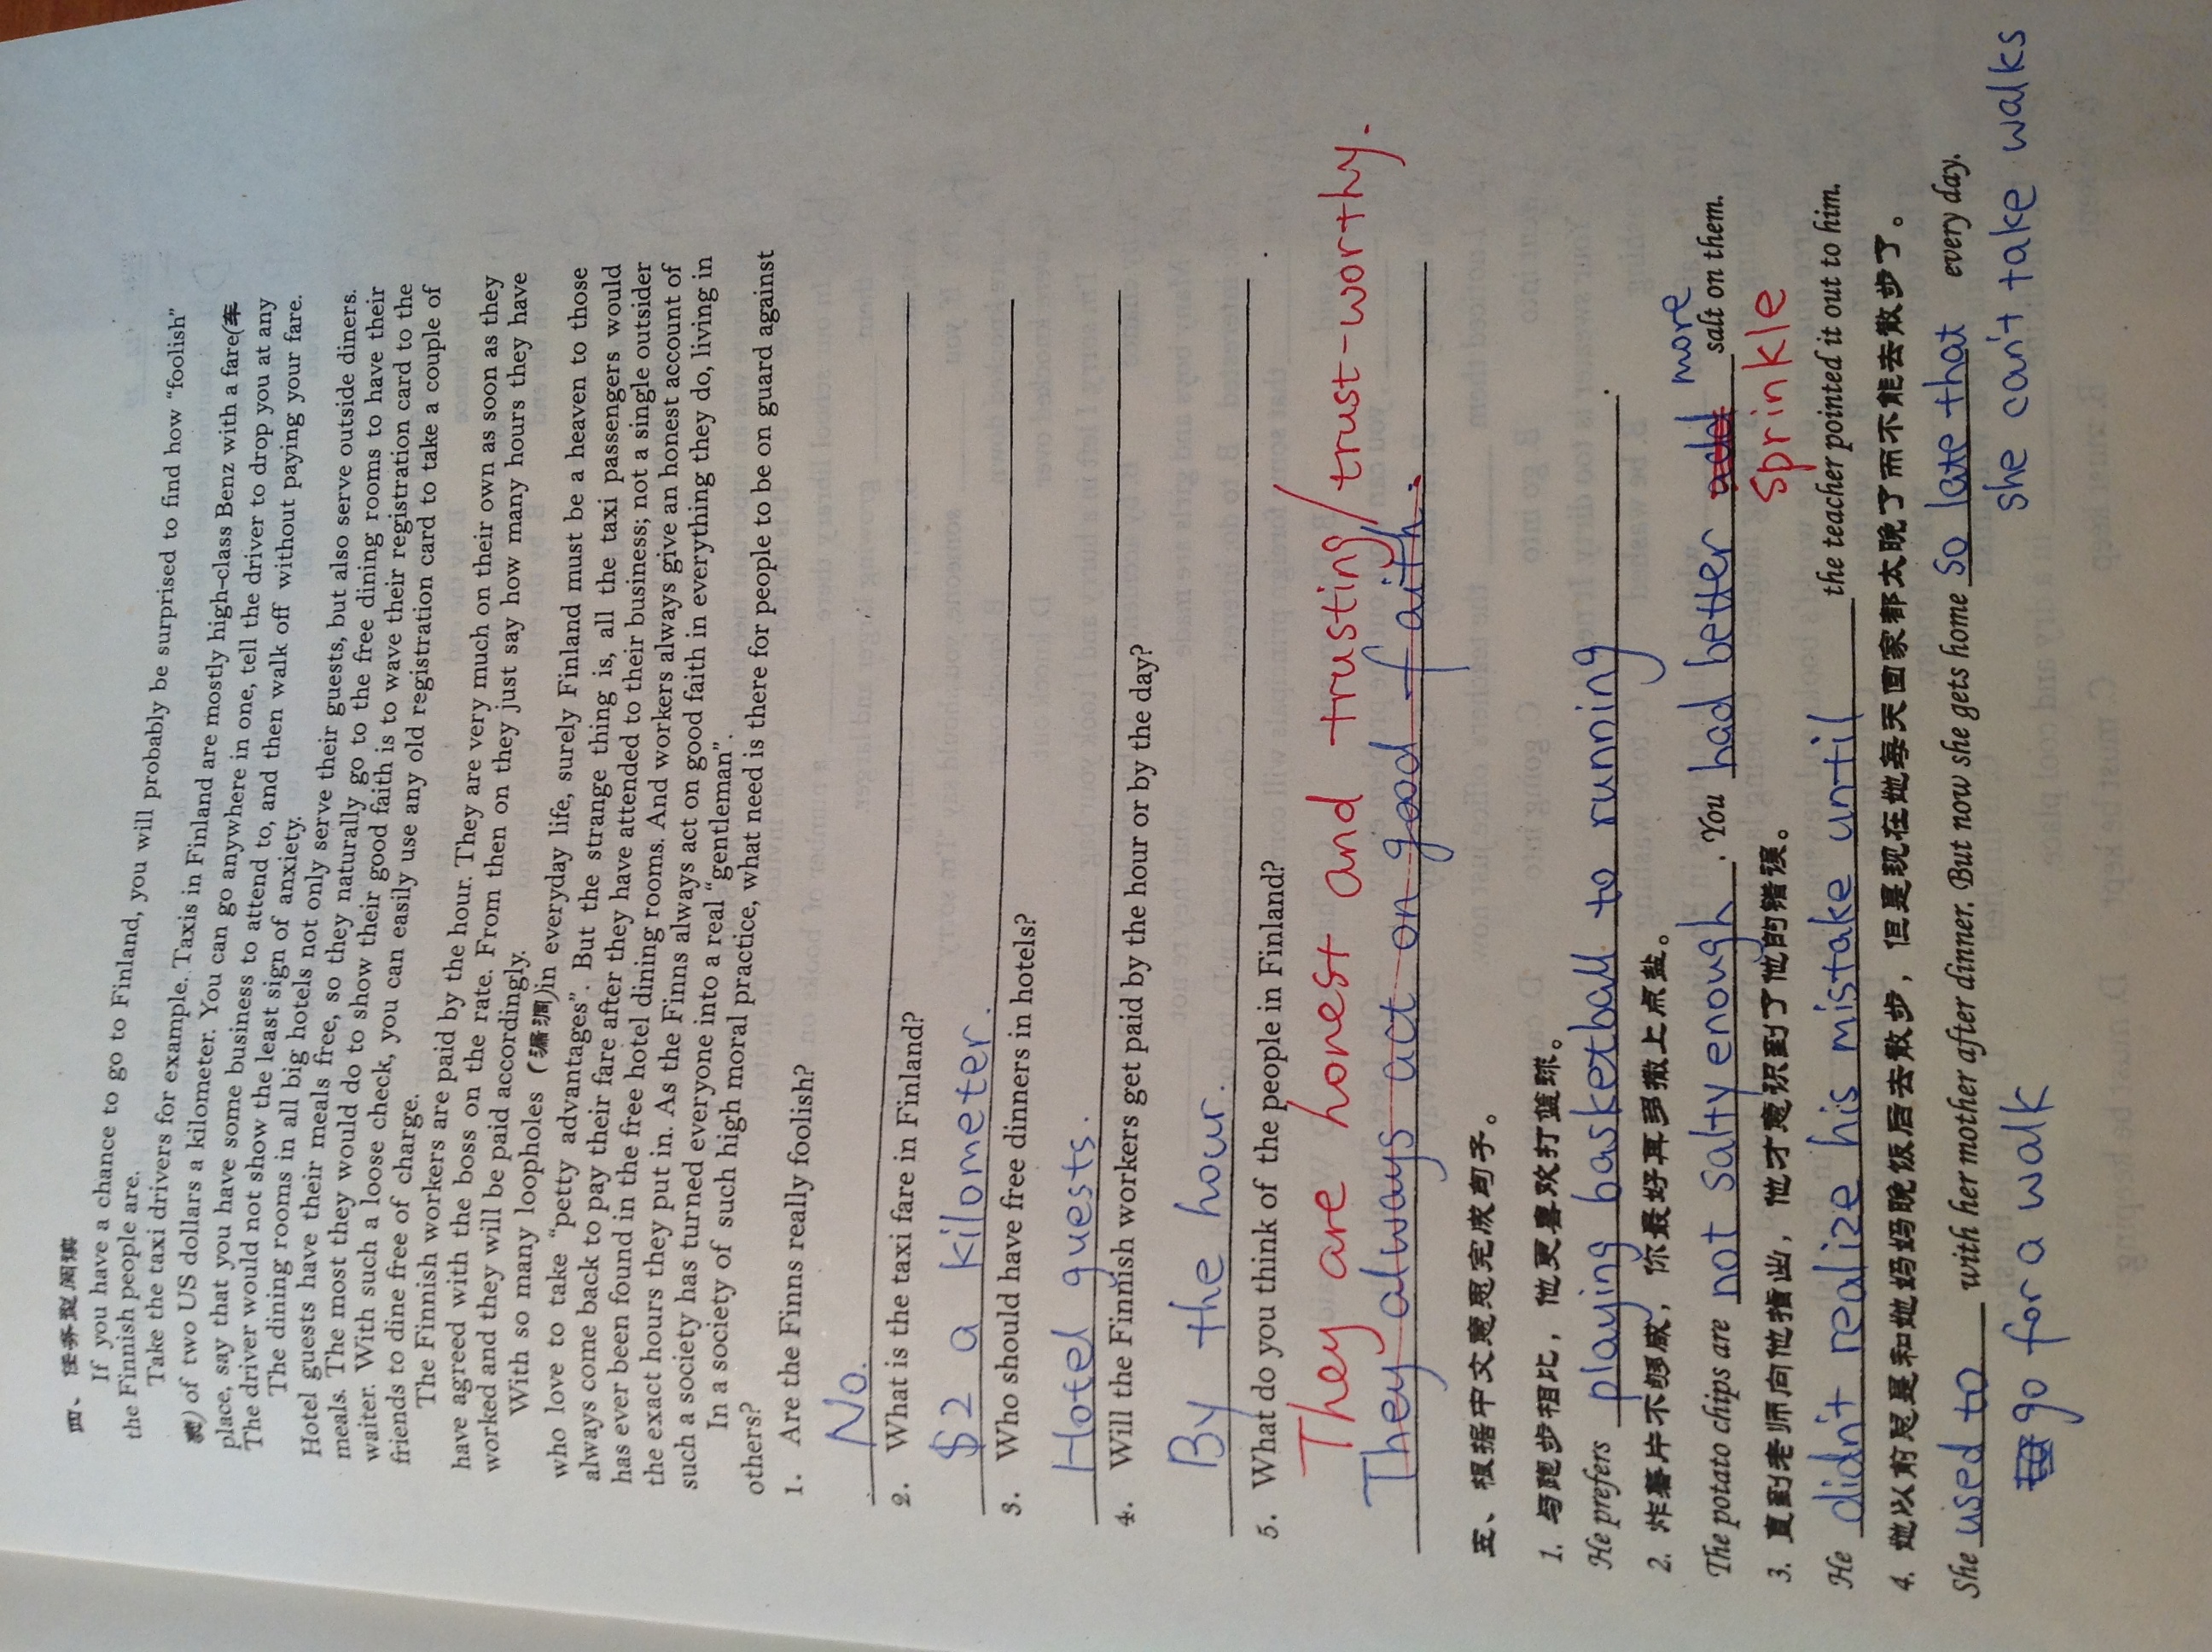 四、任务型阅读
If you have a chance to go to Finland, you will probably be surprised to find how “foolish”
the Finnish people are.
Take the taxi drivers for example. Taxis in Finland are mostly high-class Benz with a fare(车
费) of two US dollars a kilometer. You can go anywhere in one, tell the driver to drop you at any
place, say that you have some business to attend to, and then walk off without paying your fare.
The driver would not show the least sign of anxiety.
The dining rooms in all big hotels not only serve their guests, but also serve outside diners.
Hotel guests have their meals free, so they naturally go to the free dining rooms to have their
meals. The most they would do to show their good faith is to wave their registration card to the
waiter. With such a loose check, you can easily use any old registration card to take a couple of
friends to dine free of charge.
The Finnish workers are paid by the hour. They are very much on their own as soon as they
have agreed with the boss on the rate. From then on they just say how many hours they have
worked and they will be paid accordingly.
With so many loopholes (漏洞)in everyday life, surely Finland must be a heaven to those
who love to take “petty advantages”. But the strange thing is, all the taxi passengers would
always come back to pay their fare after they have attended to their business; not a single outsider
has ever been found in the free hotel dining rooms. And workers always give an honest account of
the exact hours they put in. As the Finns always act on good faith in everything they do, living in
such a society has turned everyone into a real “gentleman”.
In a society of such high moral practice, what need is there for people to be on guard against
others?
1. Are the Finns really foolish?
No.
2. What is the taxi fare in Finland?
$2 a kilometer.
3. Who should have free dinners in hotels?
Hotel guests.
4. Will the Finnish workers get paid by the hour or by the day?
By the hour.
5. What do you think of the people in Finland?
They are honest and trusting/trust-worthy.
They always act on good faith.
五、根据中文意思完成句子。
1. 与跑步相比，他更喜欢打篮球。
He prefers playing basketball to running.
2. 炸薯片不够咸，你最好再多撒上点盐。
more
The potato chips are not salty enough. You had better add salt on them.
sprinkle
3. 直到老师向他指出，他才意识到了他的错误。
He didn't realize his mistake until the teacher pointed it out to him.
4. 她以前总是和她妈妈晚饭后去散步，但是现在她每天回家都太晚了而不能去散步了。
She used to with her mother after dinner. But now she gets home so late that every day.
go for a walk she can't take walks